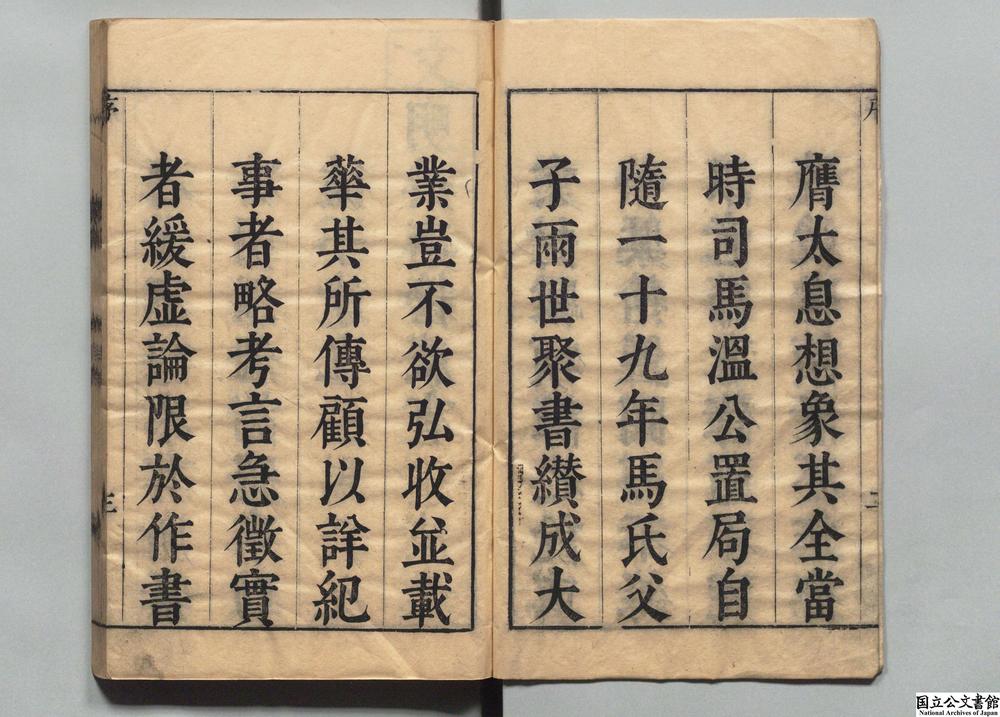 膺太息想象其全當
時司馬溫公置局自
隨一十九年馬氏父
子兩世聚書纉成大
業豈不欲弘收並載
華其所傳顧以詳紀
事者略考言急徵實
者緩虛論限於作書
序
三
国立公文書館
National Archives of Japan